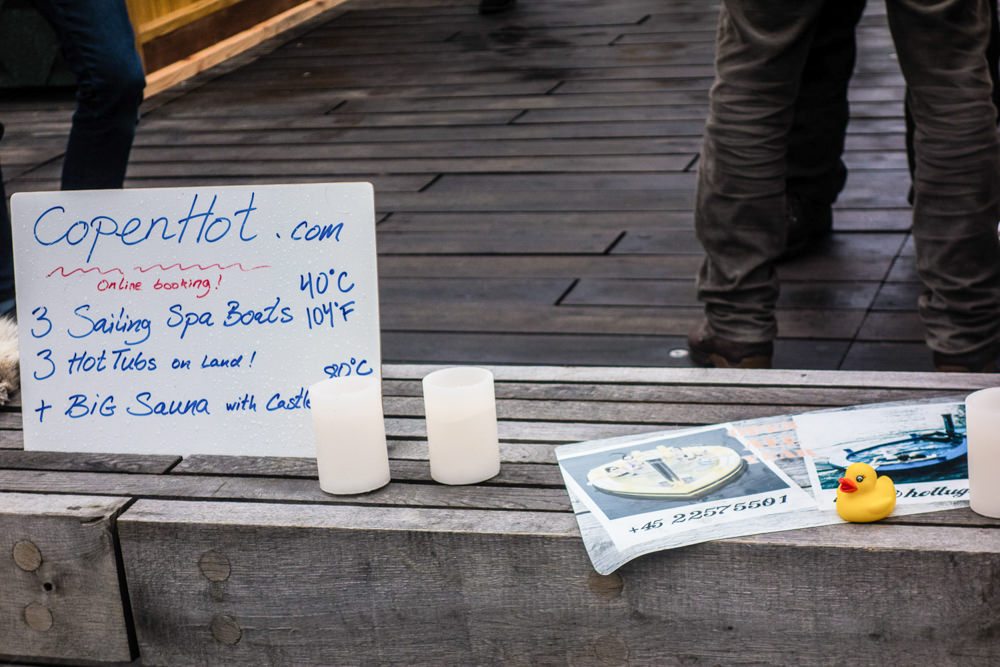 CopenHot.com
Online booking!
3 Sailing Spa Boats 40°C 104°F
3 HotTubs on Land!
80°C
+ BiG Sauna with Castle
+45 22575501
hottug